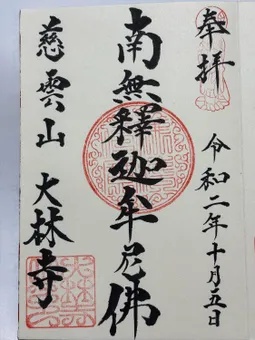 奉拝
令和二年十月五日
南無釋迦牟尼佛
慈雲山
大林寺